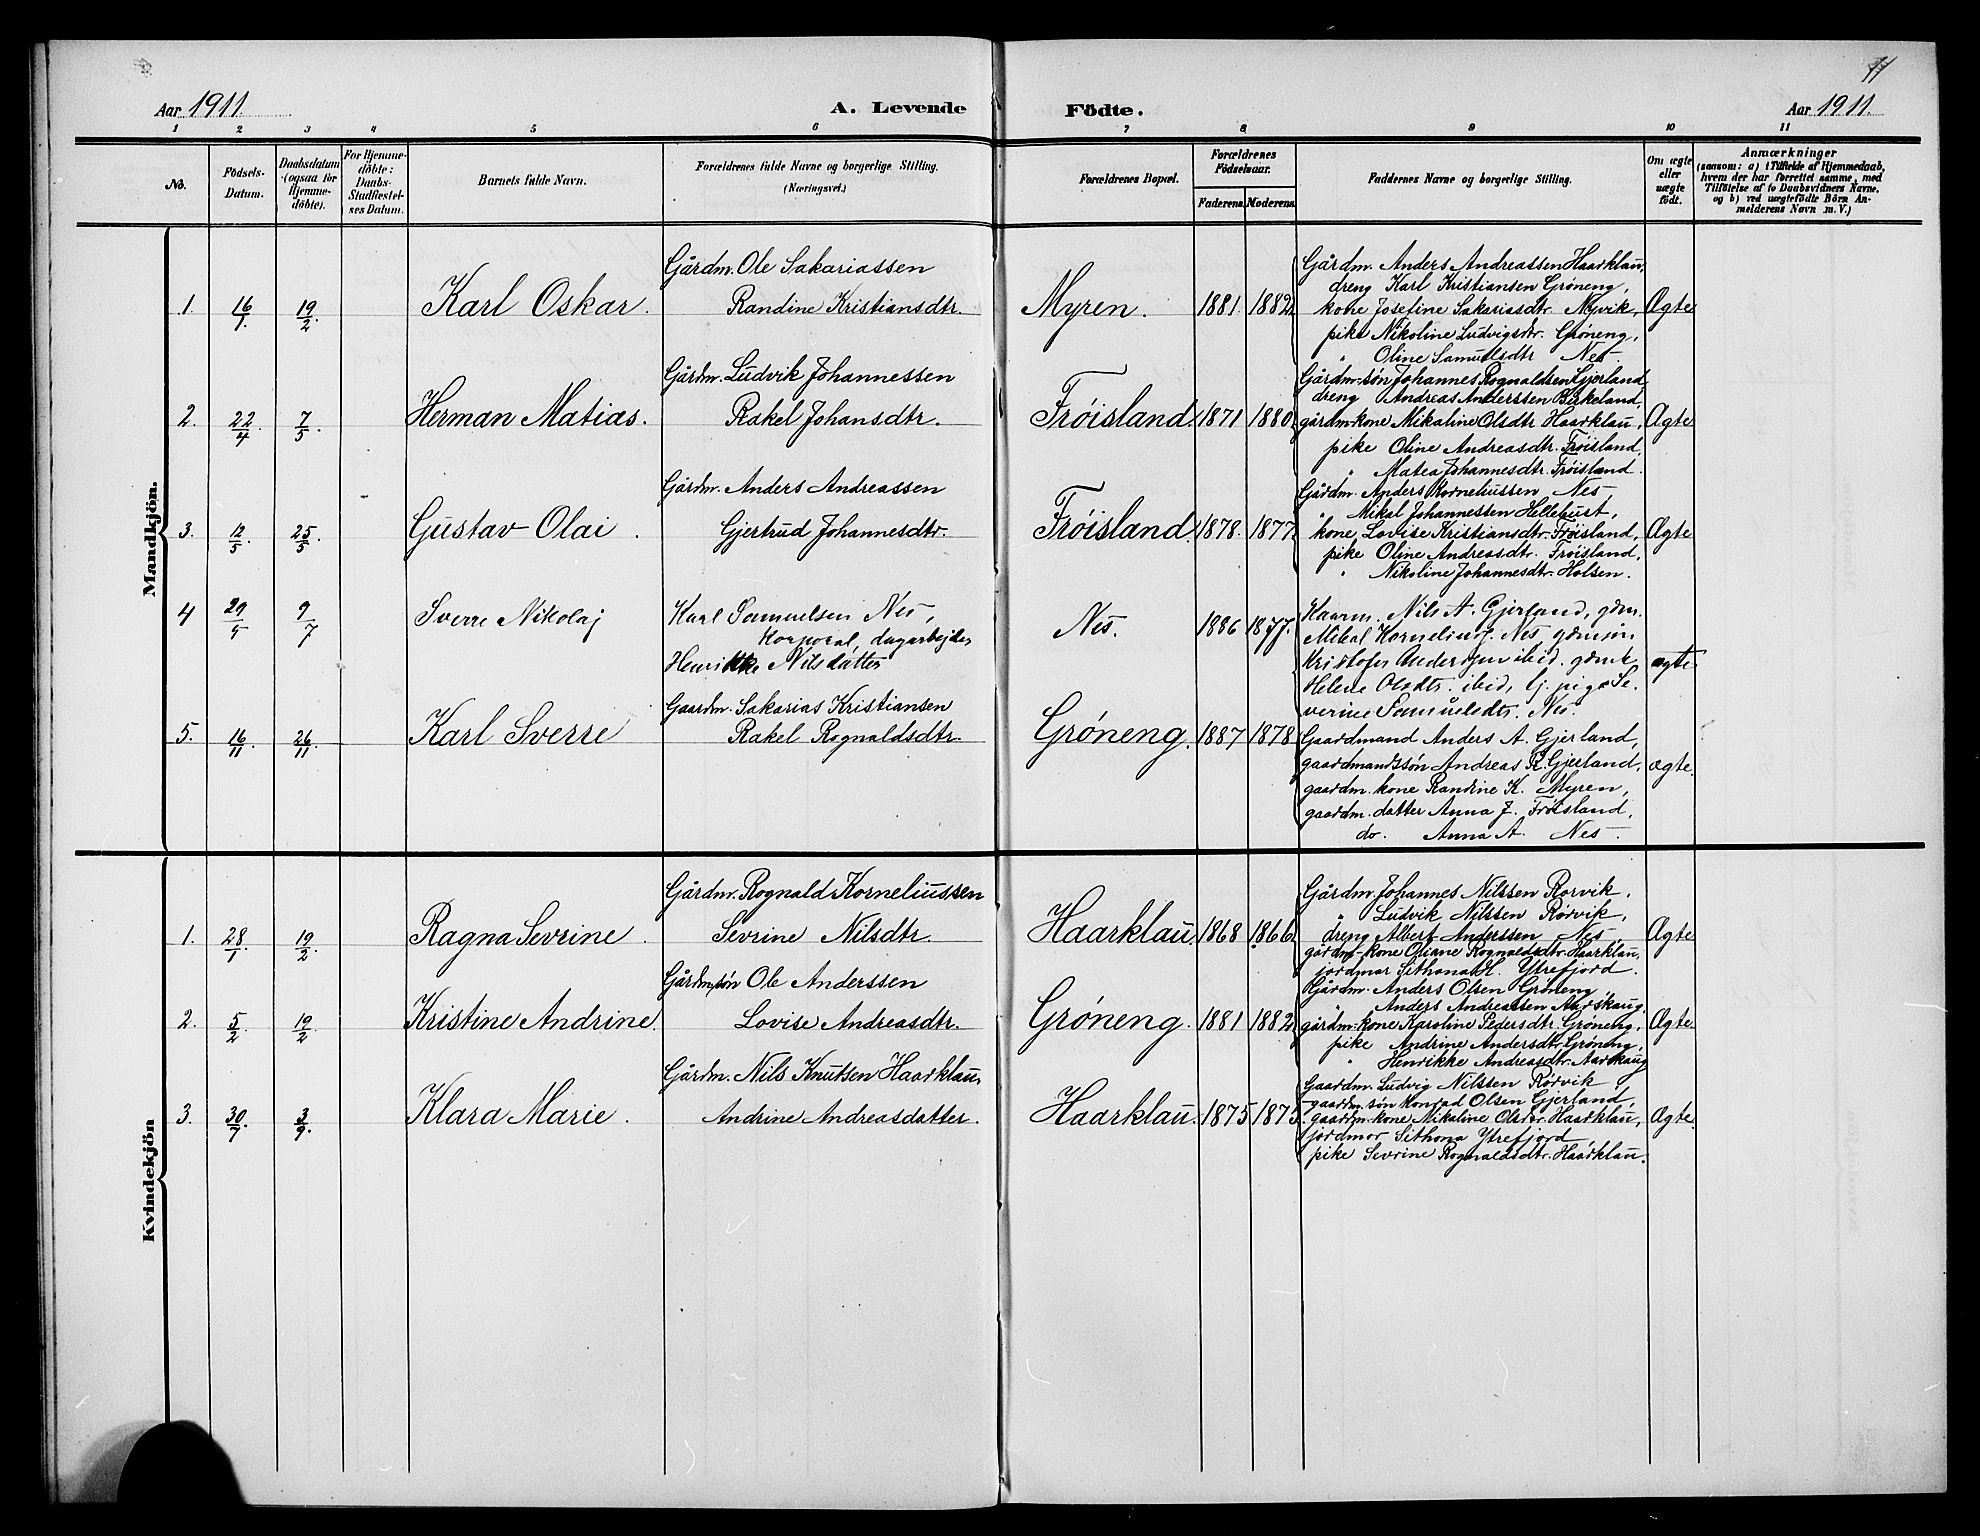 11
Aar 1911.
A. Levende
Födte.
Aar 1911.
1 2 3 4 5 6 7 8 9 10 11
No.
Födsels-
Datum.
Daabsdatum
(ogsaa for
Hjemme-
döbte).
For Hjemme-
döbte:
Daabs-
Stadfæstel-
ses Datum.
Barnets fulde Navn.
Forældrenes fulde Navne og borgerlige Stilling.
(Næringsvei.)
Forældrenes Bopæl.
Forældrenes
Födselsaar.
Faderens. Moderens.
Faddernes Navne og borgerlige Stilling.
Om ægte
eller
uægte
födt.
Anmærkninger
(saasom: a) i Tilfælde af Hjemmedaab,
hvem der har forrettet samme, med
Tilföielse af to Daabsvidners Navne.
og b) ved uægtefödte Börn An-
melderens Navn m. V.)
Mandkjön.
1. 16/1 19/2. Karl Oskar.
Gårdm. Ole Sakariassen
Randine Kristiansdtr.
Myren. 1881 1882
Gårdm. Anders Andreassen Haarklau,
dreng Karl Kristiansen Grøneng,
kone Josefine Sakariasdtr. Myvik,
pike Nikoline Ludvigsdtr. Grøneng,
" Oline Samuelsdtr Nes.
Ægte
2. 22/4. 7/5. Herman Matias.
Gårdm. Ludvik Johannessen
Rakel Johansdtr.
Frøisland. 1871 1880.
Gårdm-søn Johannes Rognaldsen Gjerland
dreng Andreas Anderssen Birkeland
gårdm-kone Mikaline Olsdtr Haarklau,
pike Oline Andreasdtr. Frøisland,
" Matea Johannesdtr. Frøisland.
Ægte
3. 12/5. 25/5 Gustav Olai.
Gårdm. Anders Andreassen
Gjertrud Johannesdtr.
Frøisland. 1878. 1877.
Gårdm. Anders Korneliussen Nes,
" Mikal Johannessen Hellebust,
kone Lovise Kristiansdtr. Frøisland,
pike Oline Andreasdtr. Frøisland,
" Nikoline Johannesdtr. Holsen.
Ægte
4 29/5 9/7 Sverre Nikolaj
Karl Samuelsen Nes,
Korporal, dagarbejder
Henrikke Nilsdatter
Nes. 1886 1877.
Nils A. Gjerland, gdm.
Mikal Korneliusf. Nes, gdmsøn.
Kristofer Andersen ibid. gdmk.
Helene Olsdtr. ibid, G. pige Se-
verine Samuelsdtr. Nes.
ægte
5. 16/11. 26/11. Karl Sverre
Gaardm. Sakarias Kristiansen
Rakel Rognaldsdtr.
Grøneng. 1887 1878
Gaardmand Anders A. Gjerland,
gaardmandssøn Andreas R. Gjerland,
gaardm. kone Randine K. Myren,
gaardm. datter Anna J. Frøisland,
do. Anna A. Nes.
ægte.
Kvindekjön
1. 28/1 19/2 Ragna Sevrine.
Gårdm. Rognald Korneliussen
Sevrine Nilsdtr.
Haarklau. 1868 1866
Gårdm. Johannes Nilssen Rørvik.
" Ludvik Nilssen Rørvik,
dreng Albert Anderssen Nes,
gårdm-kone Oliane Rognaldsdtr Haarklau,
jordmor Sithona H. Ytrefjord.
Ægte
2. 5/2 19/2 Kristine Andrine.
Gårdm,søn Ole Anderssen
Lovise Andreasdtr.
Grøneng. 1881 1882
Gårdm. Anders Olsen Grøneng,
" Anders Andreassen Aarskaug.
gårdm-kone Karoline Pedersdtr. Grøneng,
pike Andrine Andersdtr Grøneng,
" Henrikke Andreasdtr. Aarskaug
Ægte
3. 30/7. 3/9. Klara Marie.
Gårdm. Nils Knutsen Haarklau,
Andrine Andreasdatter.
Haarklau. 1875 1873.
Gaardm. Ludvig Nilssen Rørvik
gaardm. søn Konrad Olsen Gjerland,
gaardm-kone Mikaline Olsdtr. Haarklau,
Jordmor Sithona Ytrefjord
pike Sevrine Rognaldsdtr. Haarklau.
Ægte.